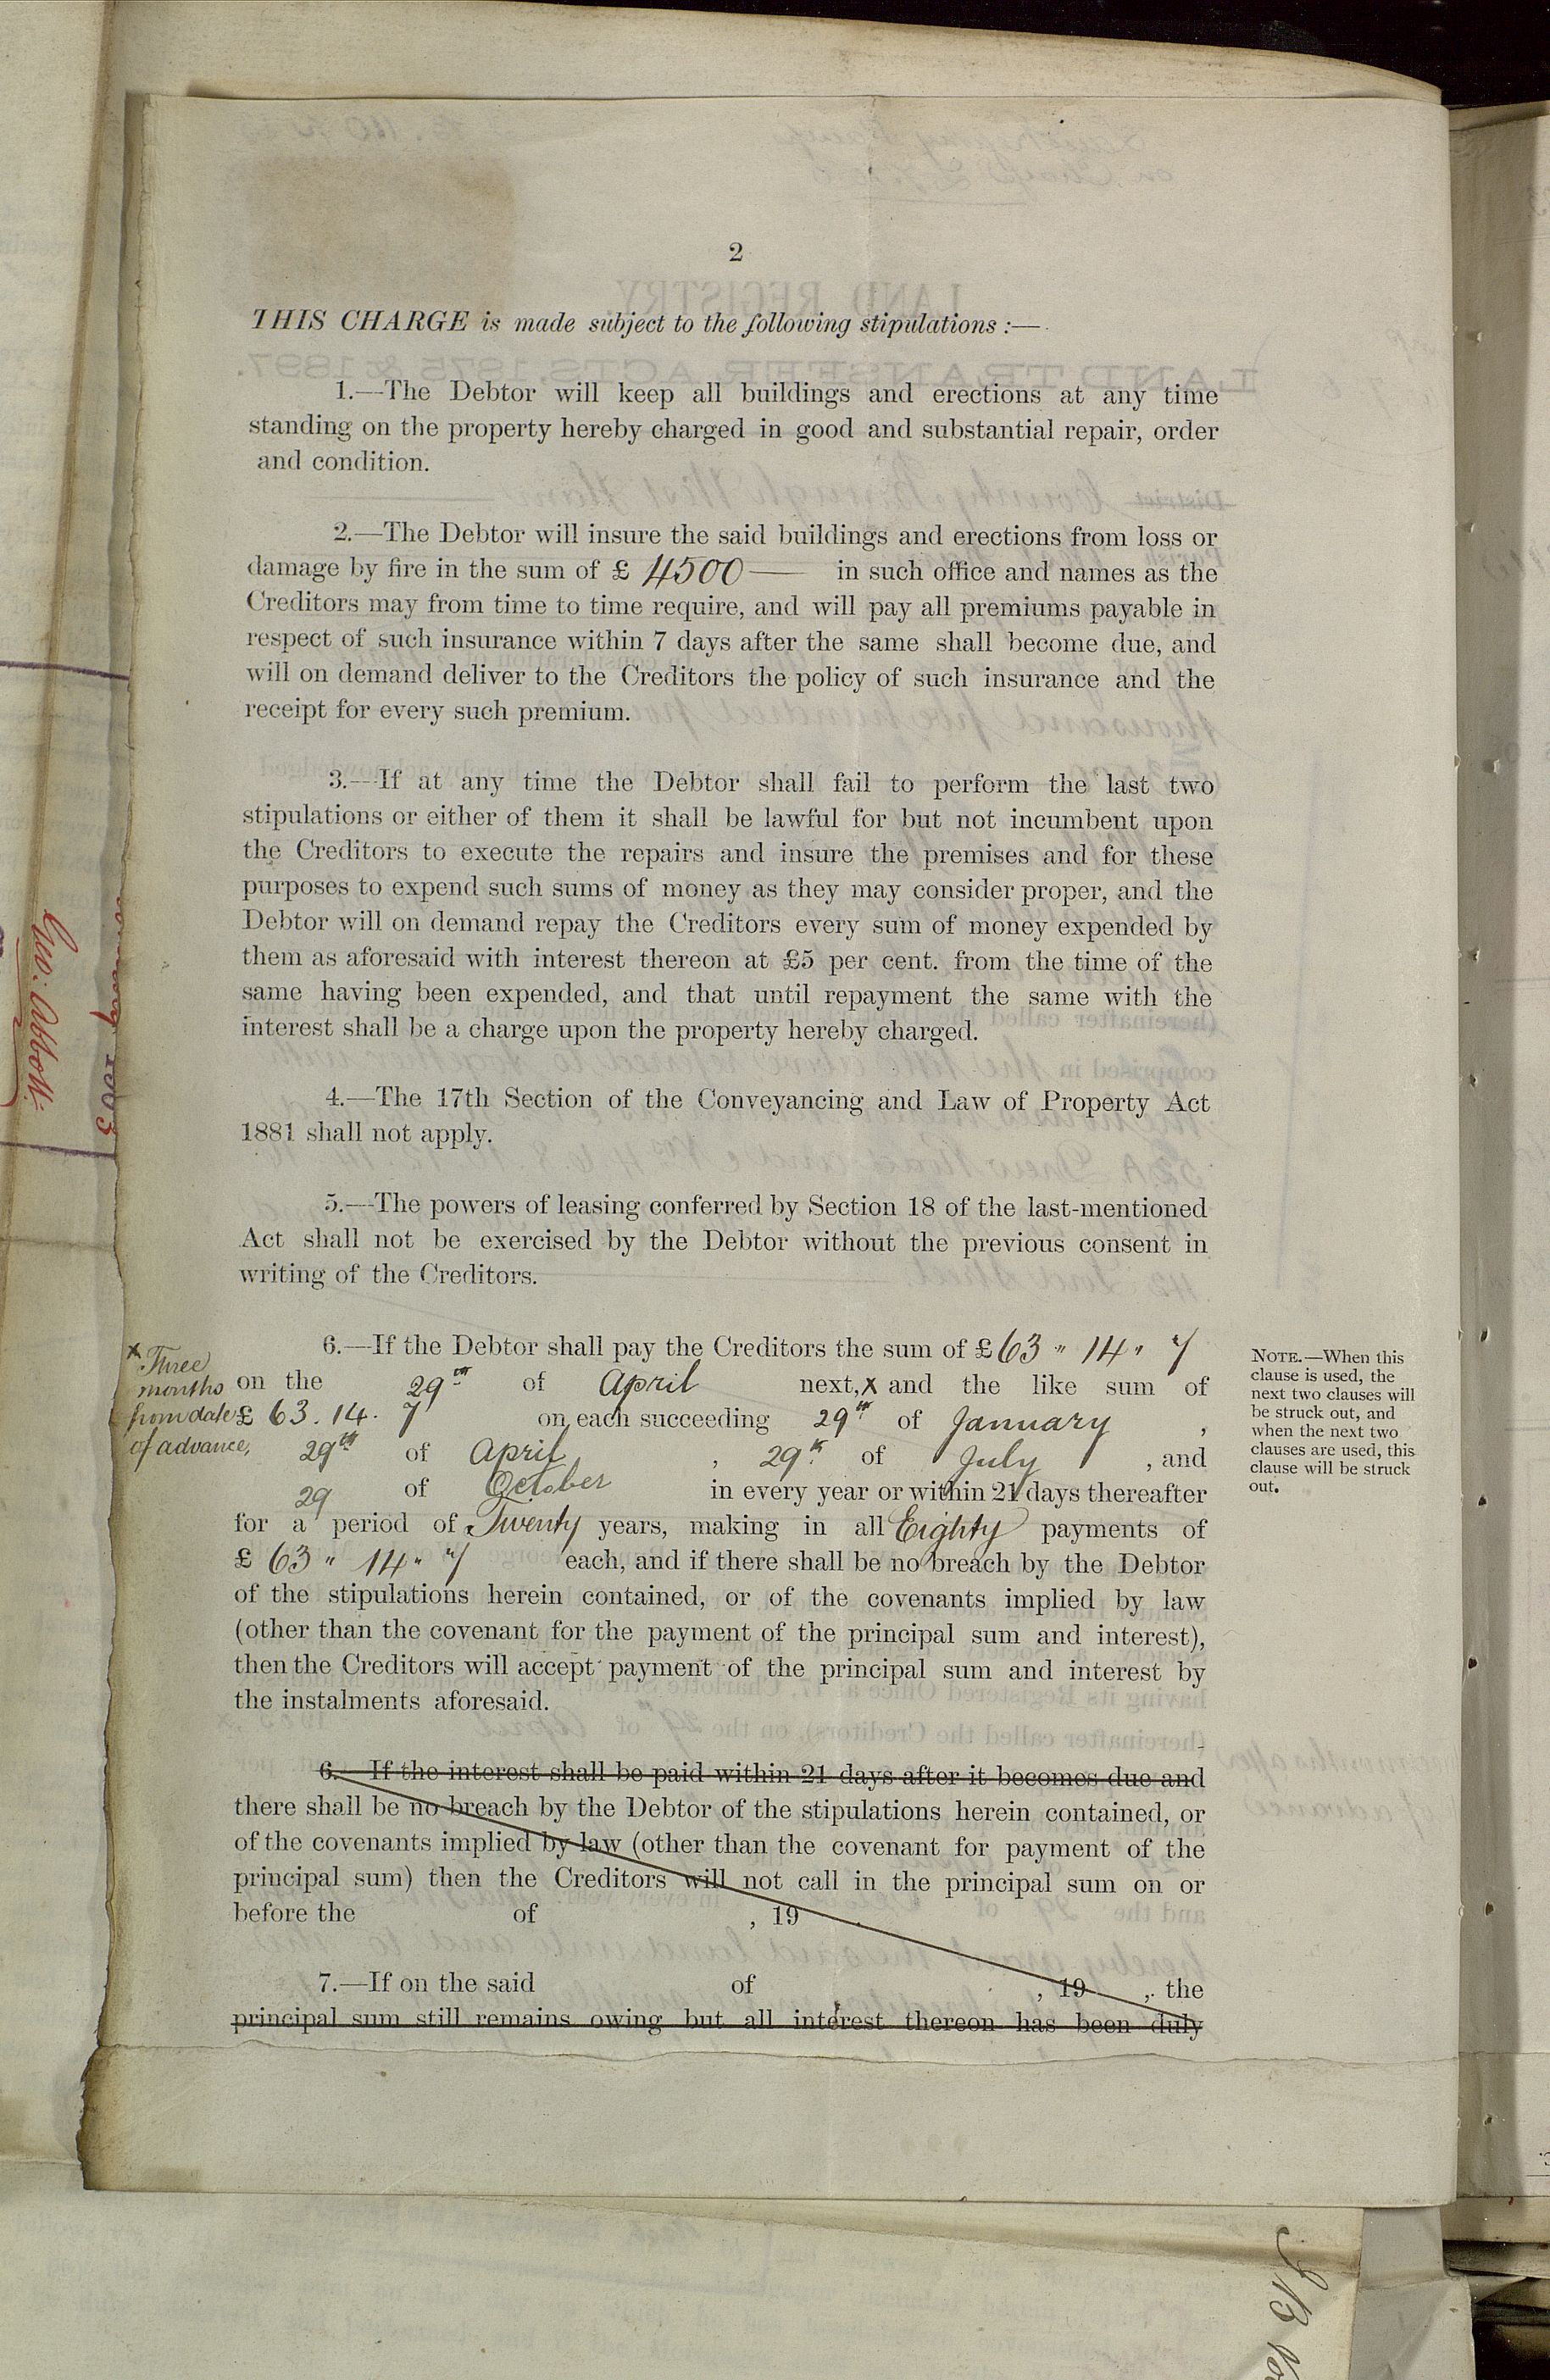 2
THIS CHARGE is made subject to the following stipulations :—
1.—The Debtor will keep all buildings and erections at any time
standing on the property hereby charged in good and substantial repair, order
and condition.
2.—The Debtor will insure the said buildings and erections from loss or
damage by fire in the sum of £ 4500 — in such office and names as the
Creditors may from time to time require, and will pay all premiums payable in
respect of such insurance within 7 days after the same shall become due, and
will on demand deliver to the Creditors the policy of such insurance and the
receipt for every such premium.
3.—If at any time the Debtor shall fail to perform the last two
stipulations or either of them it shall be lawful for but not incumbent upon
the Creditors to execute the repairs and insure the premises and for these
purposes to expend such sums of money as they may consider proper, and the
Debtor will on demand repay the Creditors every sum of money expended by
them as aforesaid with interest thereon at £5 per cent. from the time of the
same having been expended, and that until repayment the same with the
interest shall be a charge upon the property hereby charged.
4.—The 17th Section of the Conveyancing and Law of Property Act
1881 shall not apply.
5.—The powers of leasing conferred by Section 18 of the last-mentioned
Act shall not be exercised by the Debtor without the previous consent in
writing of the Creditors.
6.—If the Debtor shall pay the Creditors the sum of £ 63 " 14 " 7
on the 29th of April next, x and the like sum of
£ 63. 14. 7 on each succeeding 29th of January ,
29th of April , 29th of July , and
29 of October in every year or within 21 days thereafter
for a period of Twenty years, making in all Eighty payments of
£ 63 " 14 " 7 each, and if there shall be no breach by the Debtor
of the stipulations herein contained, or of the covenants implied by law
(other than the covenant for the payment of the principal sum and interest),
then the Creditors will accept payment of the principal sum and interest by
the instalments aforesaid.
x Three
months
from date
of advance,
NOTE.—When this
clause is used, the
next two clauses will
be struck out, and
when the next two
clauses are used, this
clause will be struck
out.
6.—If the interest shall be paid within 21 days after it becomes due and
there shall be no breach by the Debtor of the stipulations herein contained, or
of the covenants implied by law (other than the covenant for payment of the
principal sum) then the Creditors will not call in the principal sum on or
before the of , 19 .
7.—If on the said of , 19 , the
principal sum still remains owing but all interest thereon has been duly
Geo. Abbott